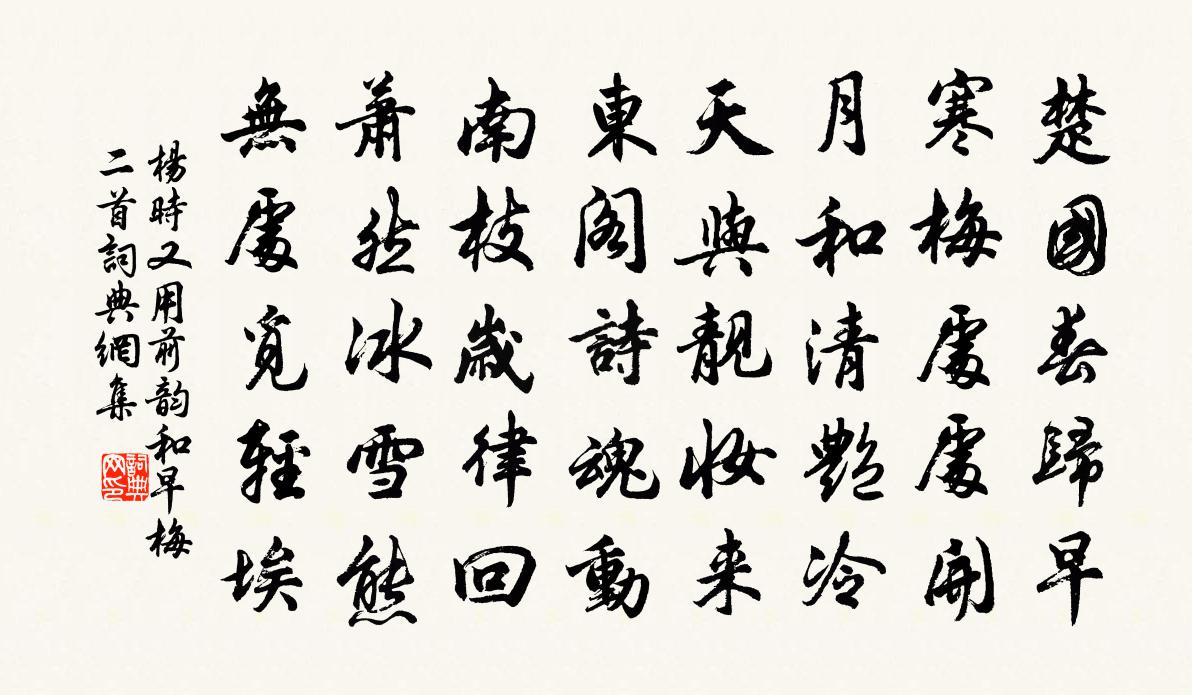 楚國春歸早
寒梅處處開
月和清艷冷
天與靚妝來
東閣詩魂動
南枝歲律回
蕭然冰雪態
無處覓輕埃
楊時又用前韵和早梅
二首詞典網集
詞典網印